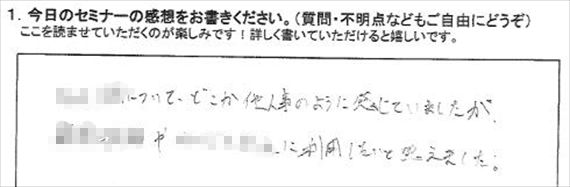 1. 今日のセミナーの感想をお書きください。(質問・不明点などもご自由にどうぞ)
ここを読ませていただくのが楽しみです！詳しく書いていただけると嬉しいです。
について、どこか他人事のように感じていましたが、
や に利用したいと思えました。